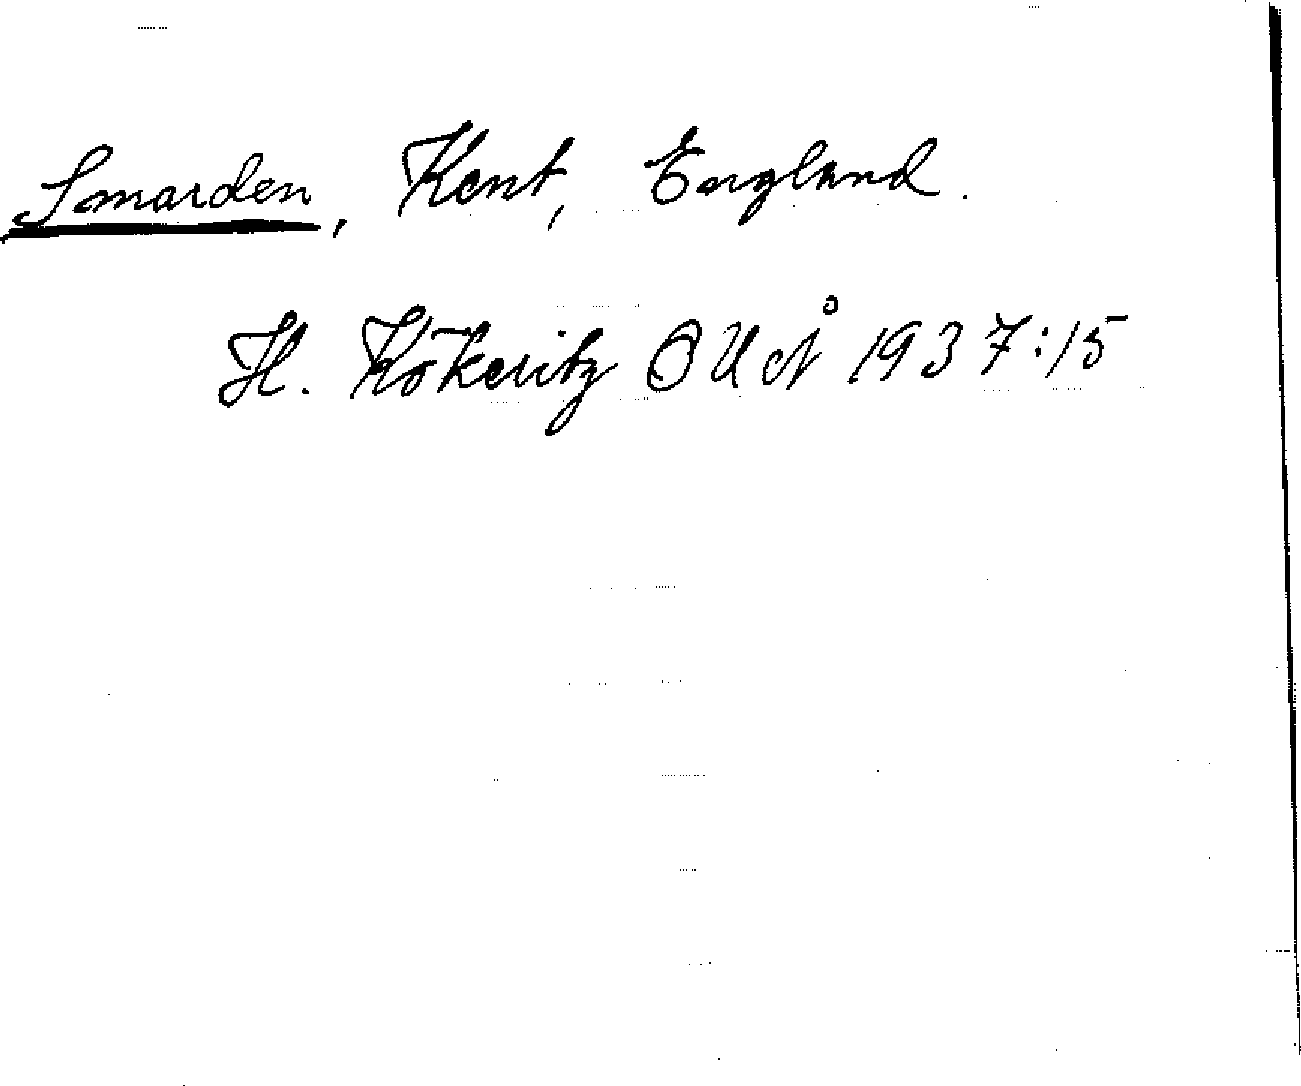 Smarden, Kent, England.
H. Kökeritz UUÅ 1937:15